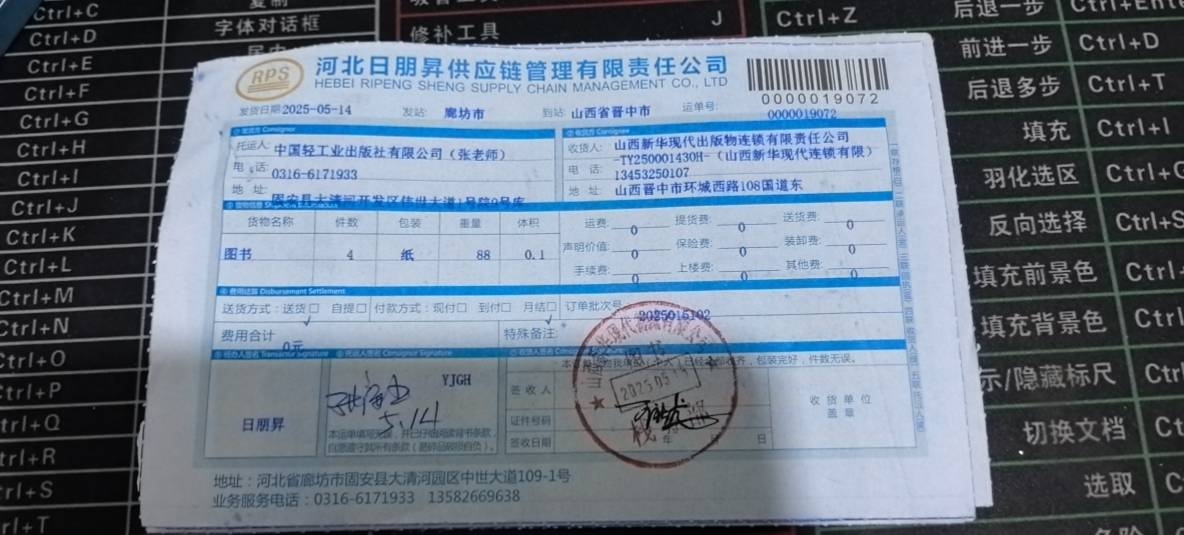 Ctrl+C
复制
Ctrl+D
字体对话框
Ctrl+E
居中
Ctrl+F
Ctrl+G
Ctrl+H
Ctrl+I
Ctrl+J
Ctrl+K
Ctrl+L
Ctrl+M
Ctrl+N
Ctrl+O
Ctrl+P
Ctrl+Q
Ctrl+R
Ctrl+S
修补工具
J
Ctrl+Z
后退一步
前进一步 Ctrl+D
后退多步 Ctrl+T
填充 Ctrl+I
羽化选区
反向选择
填充前景色
填充背景色
示/隐藏标尺
切换文档
选取
RPS
河北日朋昇供应链管理有限责任公司
HEBEI RIPENG SHENG SUPPLY CHAIN MANAGEMENT CO., LTD
0000019072
发货日期 2025-05-14 发站: 廊坊市 到站: 山西省晋中市 运单号: 0000019072
①发货方 Consignor
托运人: 中国轻工业出版社有限公司(张老师)
电话: 0316-6171933
地址: 固安县大清河开发区伟世大道1号院9号库
②收货方 Consignee
收货人: 山西新华现代出版物连锁有限责任公司
-TY250001430H-(山西新华现代连锁有限)
电话: 13453250107
地址: 山西晋中市环城西路108国道东
货物名称 件数 包装 重量 体积
图书 4 纸 88 0.1
运费: 0 提货费: 0 送货费: 0
声明价值: 0 保险费: 0 装卸费: 0
手续费: 0 上楼费: 0 其他费: 0
④费用结算 Disbursement Settlement
送货方式: 送货□ 自提□ 付款方式: 现付□ 到付□ 月结□ 订单批次号 2025015102
√ √
费用合计 0元
特殊备注:
托运人签名 Consignor Signature
日朋昇
YJGH
5.14
签收人
证件号码
签收日期 年 月 日
包装完好,件数无误。
收货单位
盖章
地址:河北省廊坊市固安县大清河园区中世大道109-1号
业务服务电话:0316-6171933 13582669638